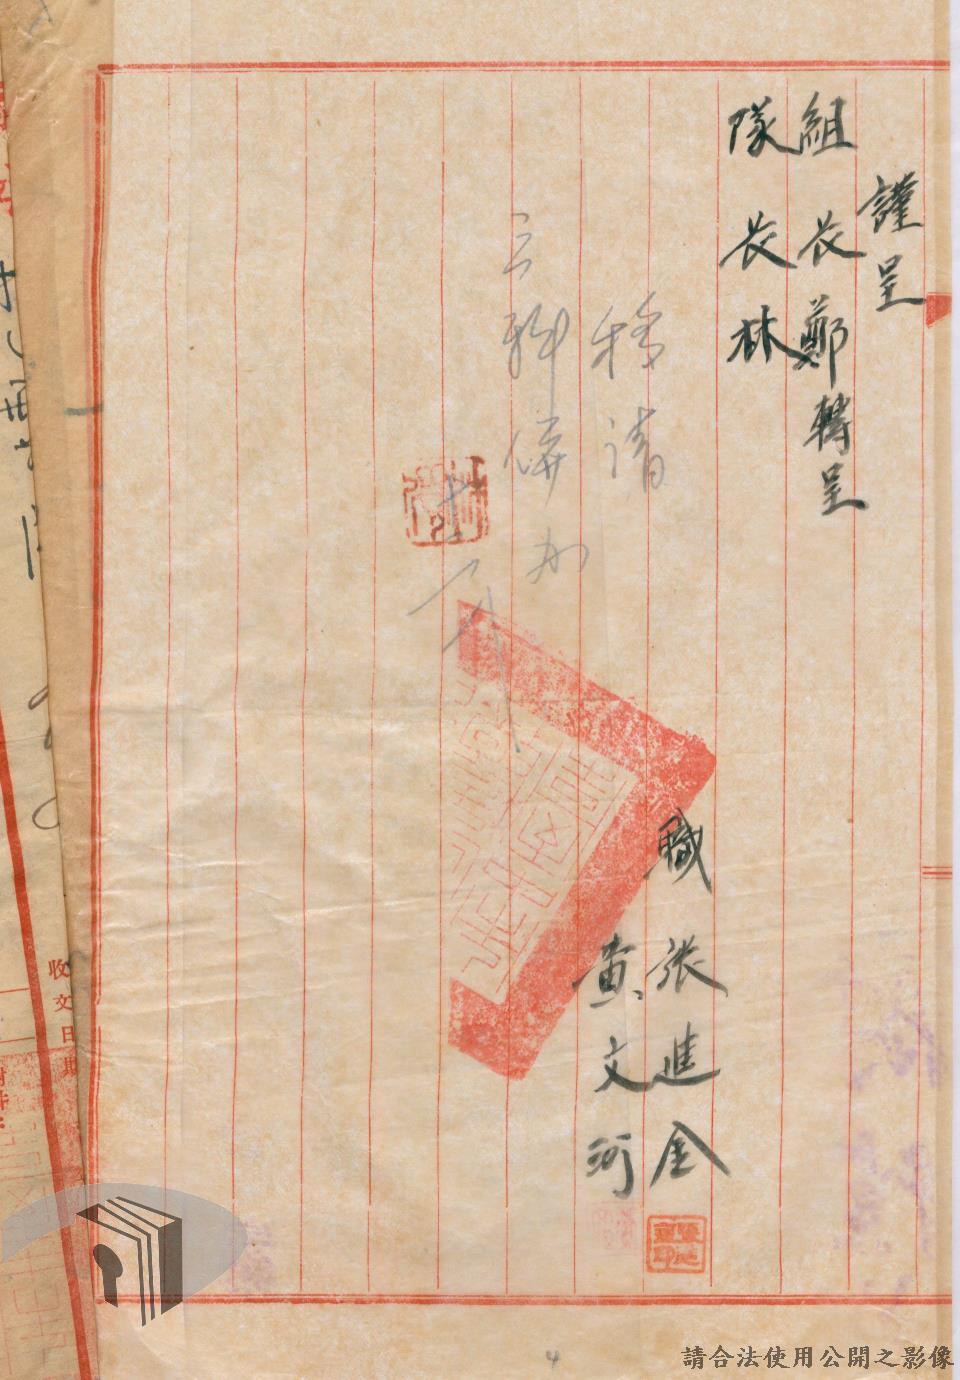 謹呈
組長鄭轉呈
隊長林
移請
三科併办
職張進金
黃文河
收文日期
4
請合法使用公開之影像